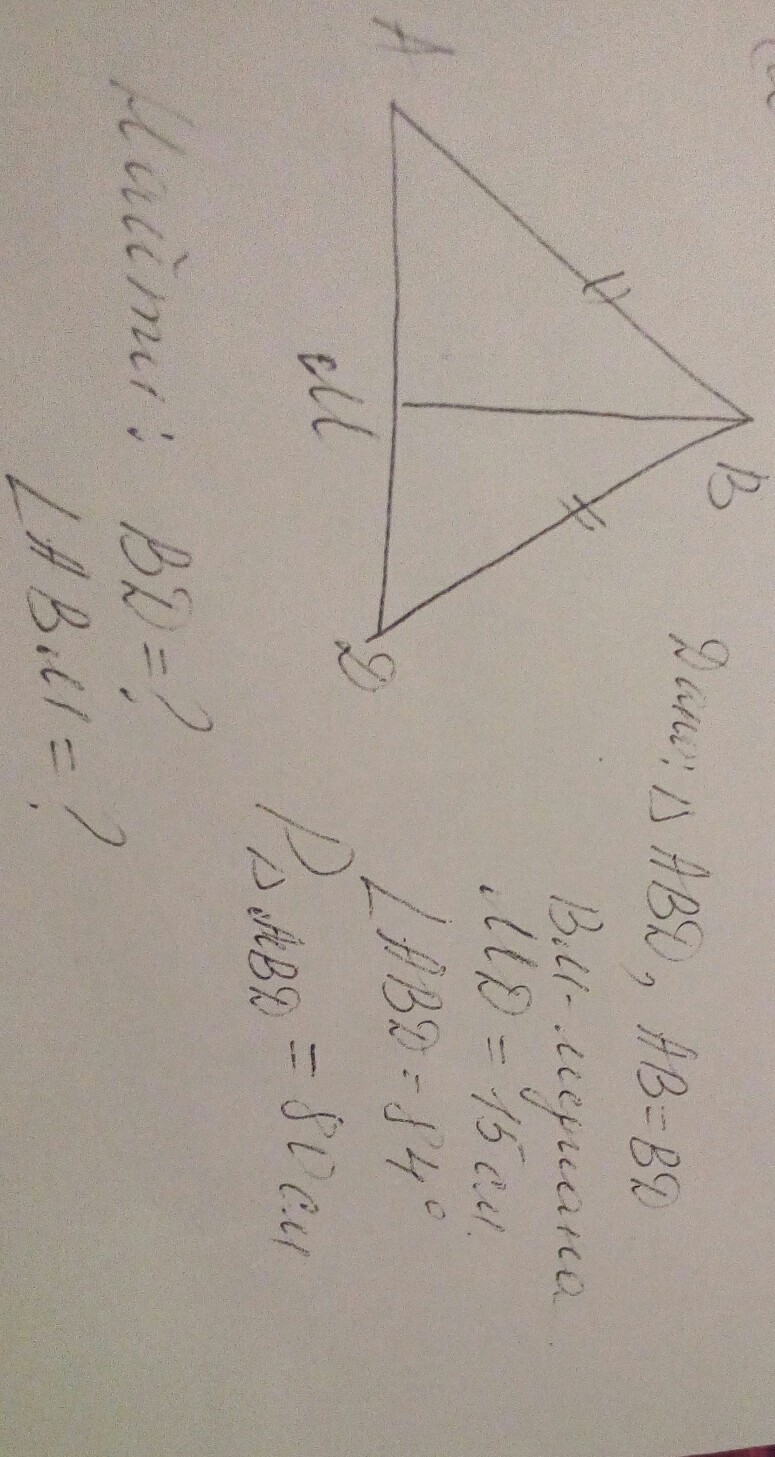 B
A
M
D
Дано: △ ABD, AB=BD
BM-медиана
MD = 15 см.
∠ABD = 84°
P△ABD = 80 см
Найти: BD = ?
∠ABM = ?